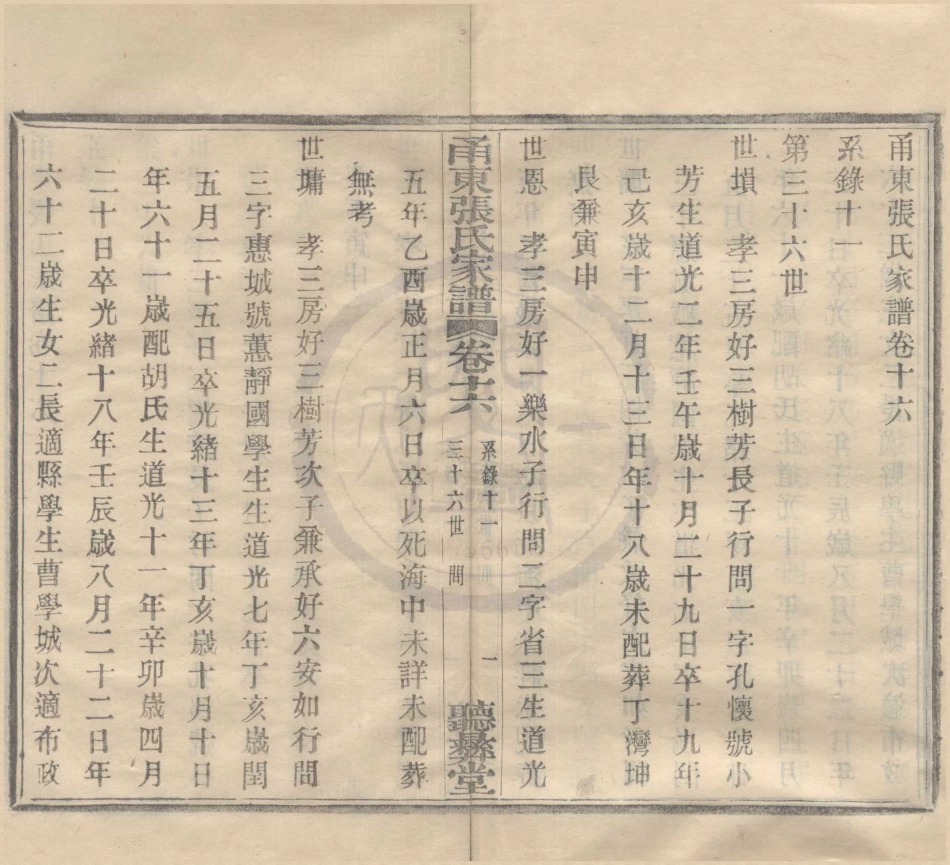 甬東張氏家譜卷十六
系錄十一
第三十六世
世塤 孝三房好三樹芳長子行問一字孔懷號小
芳生道光二年壬午歲十月二十九日卒十九年
己亥歲十二月十三日年十八歲未配葬丁灣坤
艮兼寅申
世恩 孝三房好一樂水子行問二字省三生道光
甬東張氏家譜 卷十六 系錄十一 三十六世 問 一 聽彝堂
五年乙酉歲正月六日卒以死海中未詳未配葬
無考
世墉 孝三房好三樹芳次子兼承好六安如行問
三字惠城號蕙靜國學生生道光七年丁亥歲閏
五月二十五日卒光緒十三年丁亥歲十月十日
年六十一歲配胡氏生道光十一年辛卯歲四月
二十日卒光緒十八年壬辰歲八月二十二日年
六十二歲生女二長適縣學生曹學城次適布政